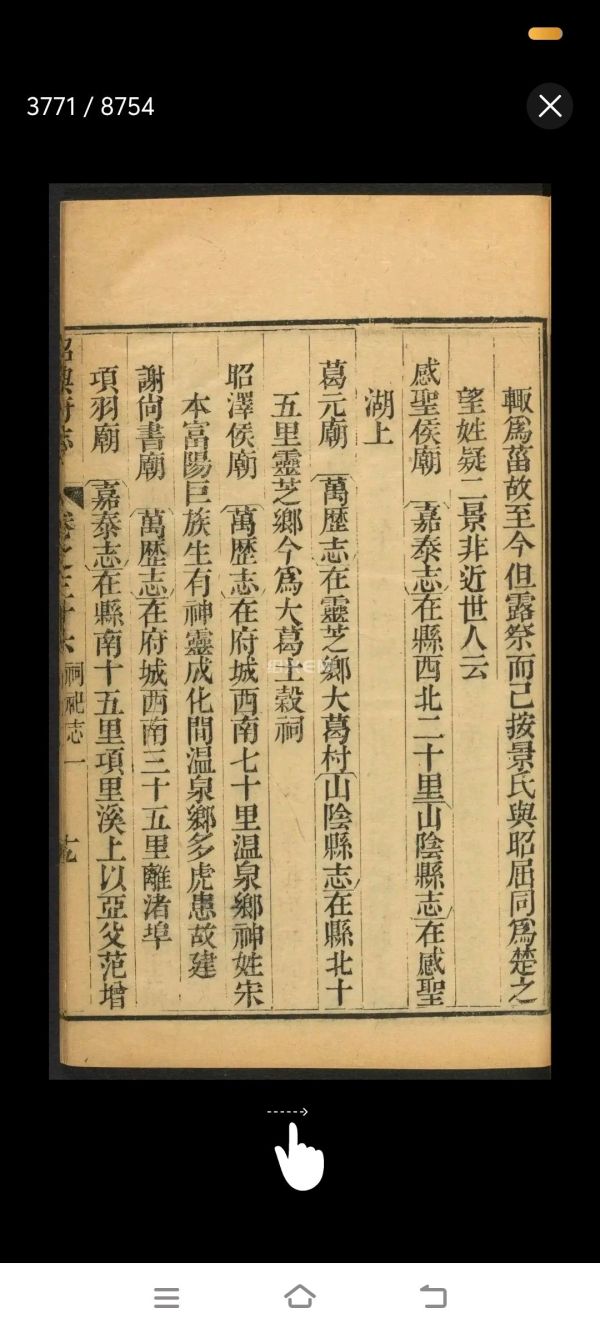 3771 / 8754
輙爲菑故至今但露祭而已按景氏與昭屈同爲楚之
望姓疑二景非近世人云
感聖侯廟 嘉泰志在縣西北二十里山陰縣志在感聖
湖上
葛元廟 萬歷志在靈芝鄉大葛村山陰縣志在縣北十
五里靈芝鄉今爲大葛土穀祠
昭澤侯廟 萬歷志在府城西南七十里溫泉鄉神姓宋
本富陽巨族生有神靈成化間溫泉鄉多虎患故建
謝尙書廟 萬歷志在府城西南三十五里離渚埠
項羽廟 嘉泰志在縣南十五里項里溪上以亞父范增
紹興府志 卷之三十六 祠祀志一